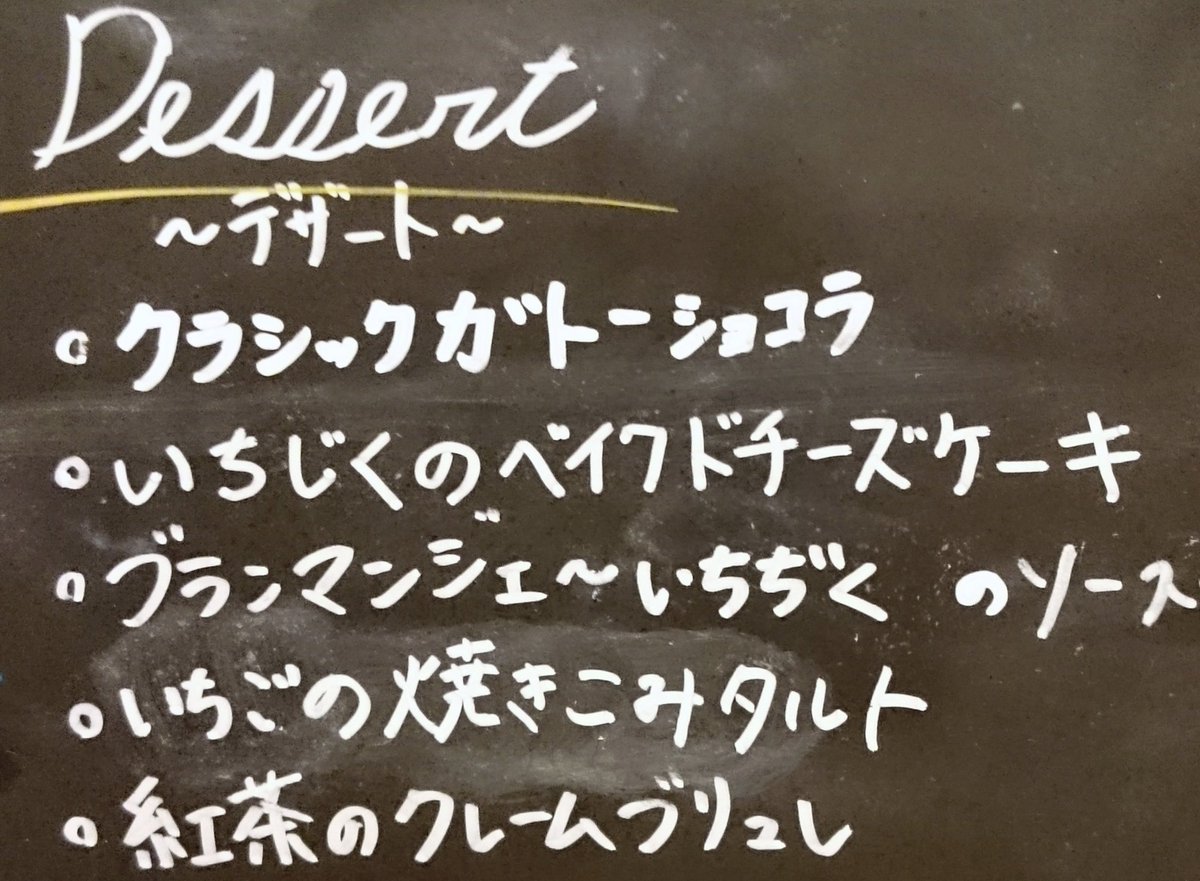 Dessert
～デザート～
○クラシックガトーショコラ
○いちじくのベイクドチーズケーキ
○ブランマンジェ～いちぢく のソース
○いちごの焼きこみタルト
○紅茶のクレームブリュレ